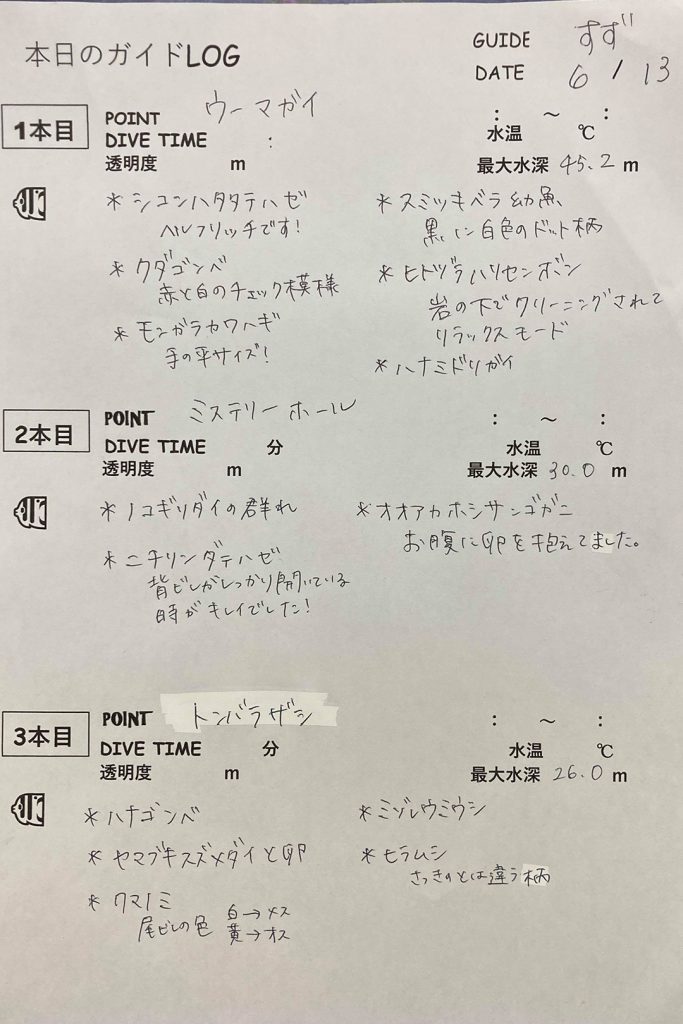 本日のガイドLOG
GUIDE すず
DATE 6 / 13
1本目
POINT ウーマガイ
: ～ :
DIVE TIME :
水温 ℃
透明度 m
最大水深 45.2 m
* シコンハタタテハゼ
ヘルフリッチです!
* クダゴンベ
赤と白のチェック模様
* モンガラカワハギ
手の平サイズ!
* スミツキベラ幼魚
黒に白色のドット柄
* ヒトヅラハリセンボン
岩の下でクリーニングされて
リラックスモード
* ハナミドリガイ
2本目
POINT ミステリーホール
: ～ :
DIVE TIME 分
水温 ℃
透明度 m
最大水深 30.0 m
* ノコギリダイの群れ
* ニチリンダテハゼ
背ビレがしっかり開いている
時がキレイでした!
* オオアカホシサンゴガニ
お腹に卵を抱えてました。
3本目
POINT トンバラザシ
: ～ :
DIVE TIME 分
水温 ℃
透明度 m
最大水深 26.0 m
* ハナゴンベ
* ヤマブキスズメダイと卵
* クマノミ
尾ビレの色 白→メス
黄→オス
* ミゾレウミウシ
* ヒラムシ
さっきのとは違う柄